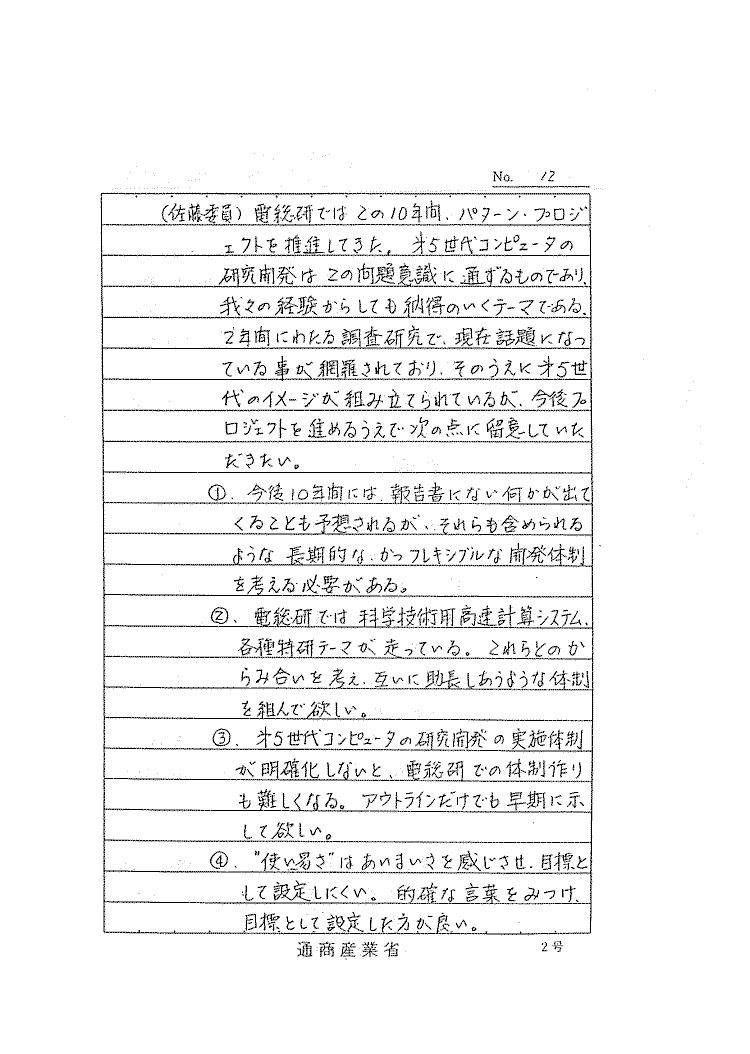 No. 12
(佐藤委員)電総研ではこの10年間、パターン・プロジ
ェクトを推進してきた。第5世代コンピュータの
研究開発はこの問題意識に通ずるものであり、
我々の経験からしても納得のいくテーマである。
2年間にわたる調査研究で、現在話題になっ
ている事が網羅されており、そのうえに第5世
代のイメージが組み立てられているが、今後プ
ロジェクトを進めるうえで次の点に留意していた
だきたい。
①. 今後10年間には、報告書にない何かが出て
くることも予想されるが、それらも含められる
ような長期的な、かつフレキシブルな開発体制
を考える必要がある。
②. 電総研では科学技術用高速計算システム、
各種特研テーマが走っている。これらとのか
らみ合いを考え、互いに助長しあうような体制
を組んで欲しい。
③. 第5世代コンピュータの研究開発の実施体制
が明確化しないと、電総研での体制作り
も難しくなる。アウトラインだけでも早期に示
して欲しい。
④. "使い易さ"はあいまいさを感じさせ、目標と
して設定しにくい。的確な言葉をみつけ、
目標として設定した方が良い。
通商産業省 2号